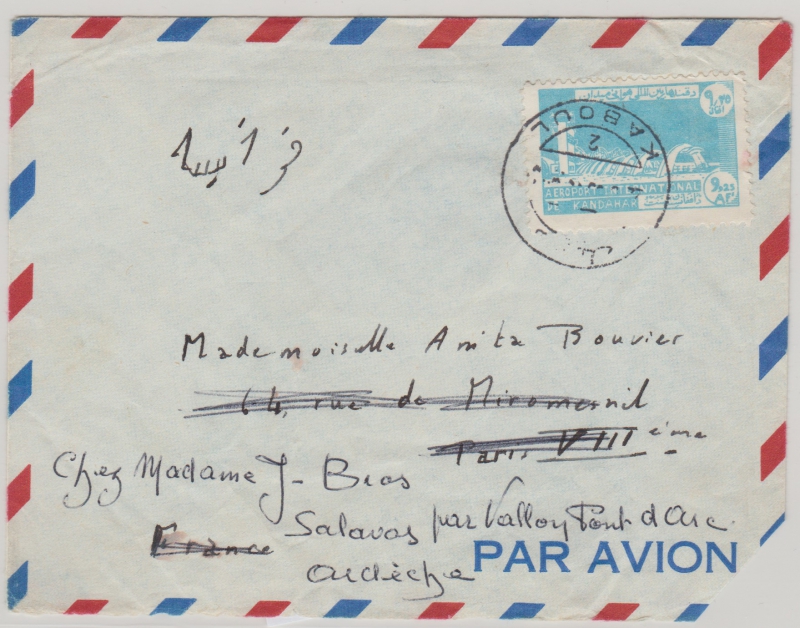 ٩٫٢٥
KABOUL
2
AEROPORT INTERNATIONAL
DE KANDAHAR
9,25
AF
فرانسه
Mademoiselle Anita Bouvier
64, rue de Miromesnil
Paris VIII ème
Chez Madame J- Bros
Salavas par Vallon Pont d'Arc
France
Ardèche
PAR AVION